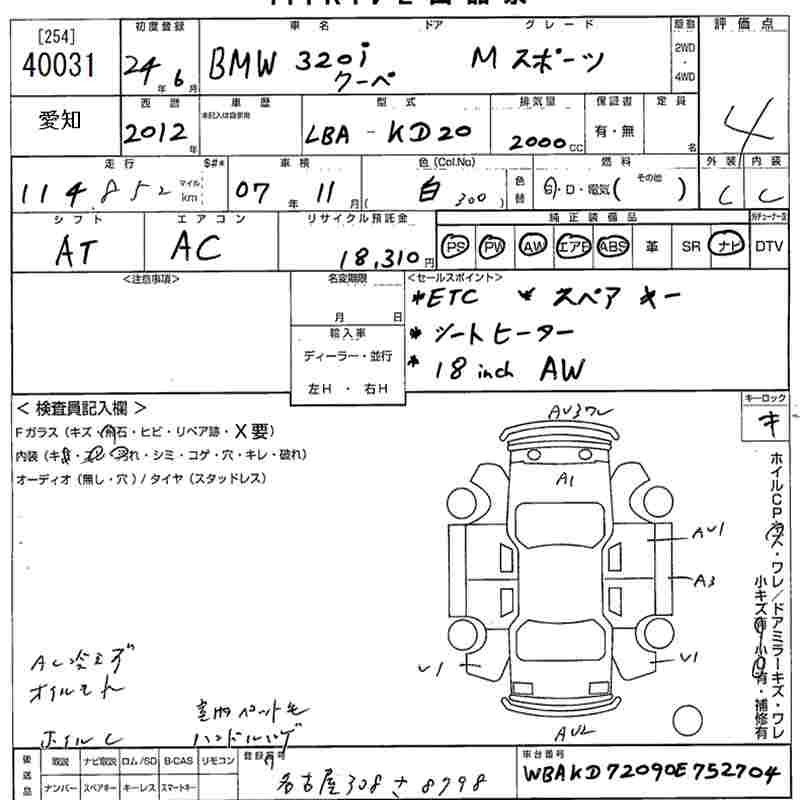 [254]
40031
初度登録 車名 ドア グレード 駆動 評価点
24年6月 BMW 320i クーペ M スポーツ 2WD・4WD
愛知
西暦 車歴 型式 排気量 保証書 定員
2012年 未記入は自家用 LBA - KD20 2000cc 有・無 名
4
走行 S#* 車検 色(Col.No) 色替 燃料 その他 外装 内装
114,852 マイル km 07年11月 白 300 G・D・電気( ) C C
シフト エアコン リサイクル預託金 純正装備品
AT AC 18,310円 PS PW AW エアB ABS 革 SR ナビ DTV
<注意事項> 名変期限 <セールスポイント>
月 日
*ETC * スペアキー
輸入車
*シートヒーター
ディーラー・並行
*18inch AW
左H・右H
<検査員記入欄>
Fガラス(キズ・飛石・ヒビ・リペア跡・X要)
内装(キズ・スレ・汚れ・シミ・コゲ・穴・キレ・破れ)
オーディオ(無し・穴)/タイヤ(スタッドレス)
キーロック
キ
AU3ワレ
A1
AU1
A3
U1
U1
AU2
ホイルCP・キズ・ワレ/ドアミラーキズ・ワレ
小キズ有・小凹有・補修有
AC冷えず
オイルモレ
ホイルC
後送品 取説 ナビ取説 ロム/SD B-CAS リモコン
ナンバー スペアキー キーレス スマートキー
登録番号
名古屋308さ8798
車台番号
WBAKD72090E752704